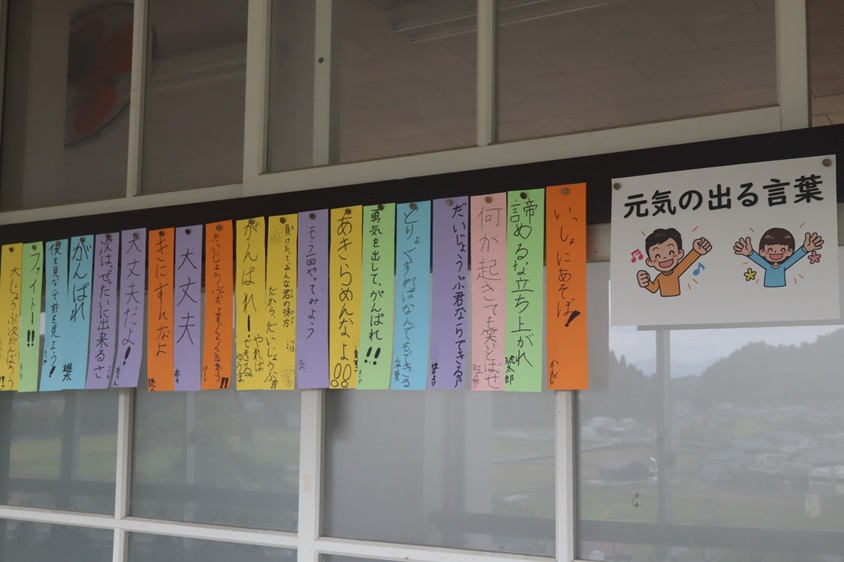 元気の出る言葉
いっしょにあそぼ!
かんな
諦めるな立ち上がれ
琥太郎
何が起きても笑いとばせ
だいじょうぶ君ならできる
どりょくすればなんでもできる
勇気を出して、がんばれ!!
あきらめんなよ!!
もう一回やってみよう
負けたってみんな君の味方
だから、だいじょうぶ!!
がんばれー
やればできる
大丈夫
きにすんなよ
大丈夫だよ!
次はぜったいに出来るさ
がんばれ
雄太
僕を見な、前を見よう!
ファイトー!!